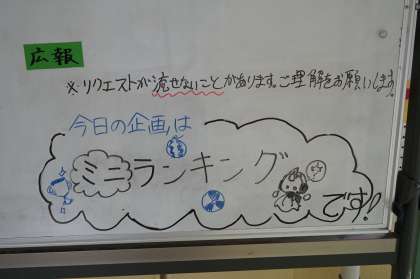 広報
※リクエストが流せないことがあります。ご理解をお願いします
今日の企画は
ミニランキング
です!!